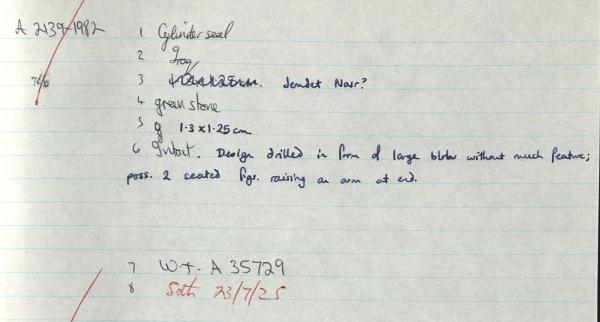 A 2139-1982
1 Cylinder seal
2 Iraq
3 Jemdet Nasr?
4 green stone
5 1.3 x 1.25 cm
6 Intact. Design drilled in form of large blobs without much feature;
poss. 2 seated figs. raising an arm at end.
7 W.T. A 35729
8 Soth 23/7/25